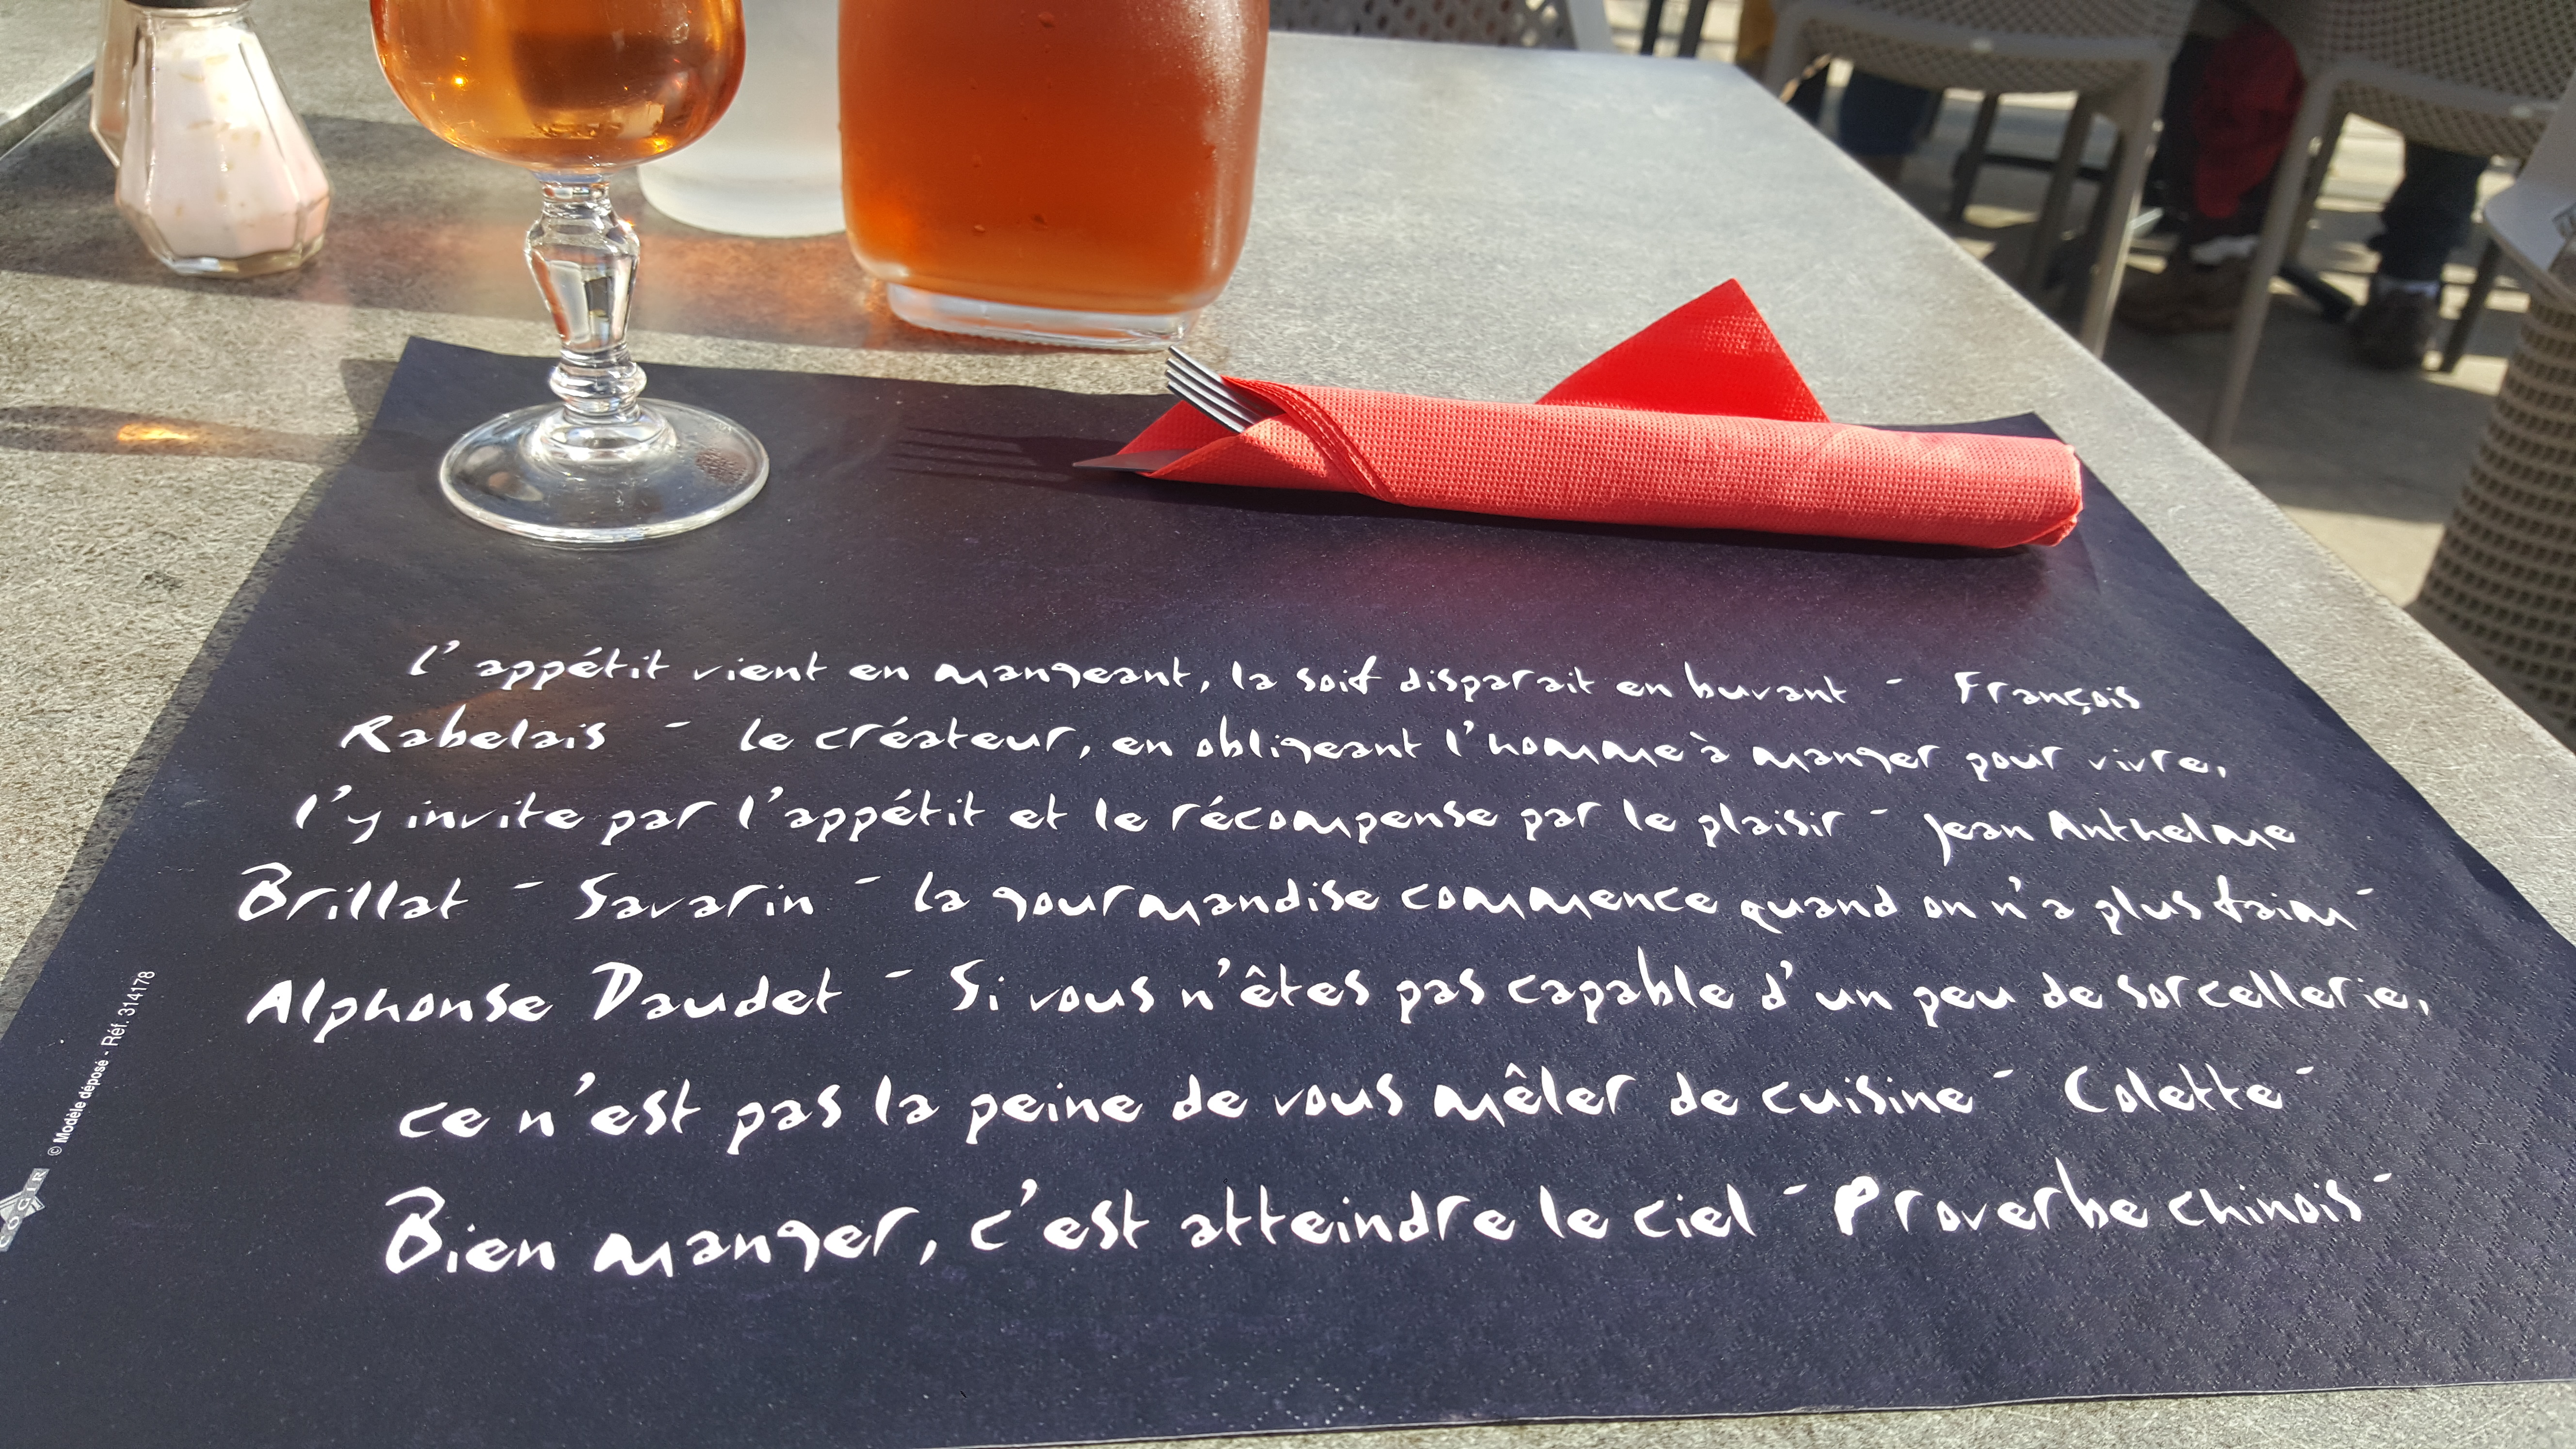 l'appétit vient en mangeant, la soif disparait en buvant - François
Rabelais - le créateur, en obligeant l'homme à manger pour vivre,
l'y invite par l'appétit et le récompense par le plaisir - Jean Anthelme
Brillat - Savarin - la gourmandise commence quand on n'a plus faim -
Alphonse Daudet - Si vous n'êtes pas capable d'un peu de sorcellerie,
ce n'est pas la peine de vous mêler de cuisine - Colette -
Bien manger, c'est atteindre le ciel - Proverbe chinois -
© Modèle déposé - Réf. 314178
COGIR